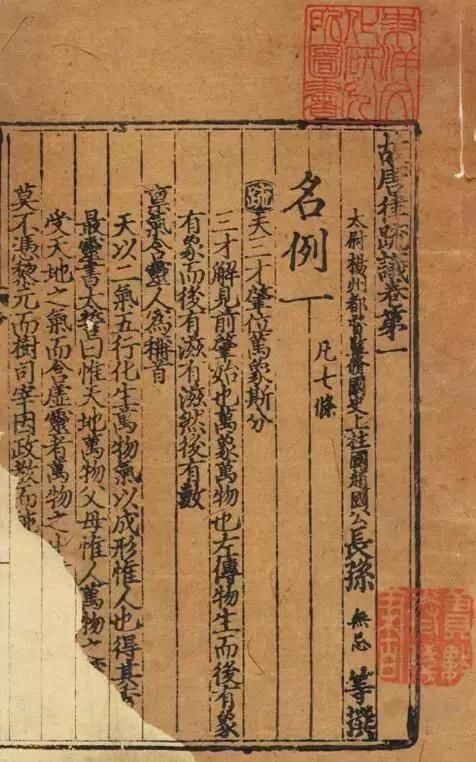 故唐律疏議卷第一
太尉揚州都督監脩國史上柱國趙國公長孫無忌等撰
名例一 凡七條
疏夫三才肇位萬象斯分
三才解見前肇始也萬象萬物也左傳物生而後有象
有象而後有滋有滋然後有數
稟氣含靈人爲稱首
天以二氣五行化生萬物氣以成形惟人也得其秀
最靈書太誓曰惟天地萬物父母惟人萬物之
受天地之氣而含虛靈者萬物之
莫不憑黎元而樹司宰因政教而
東洋文化研究所圖書